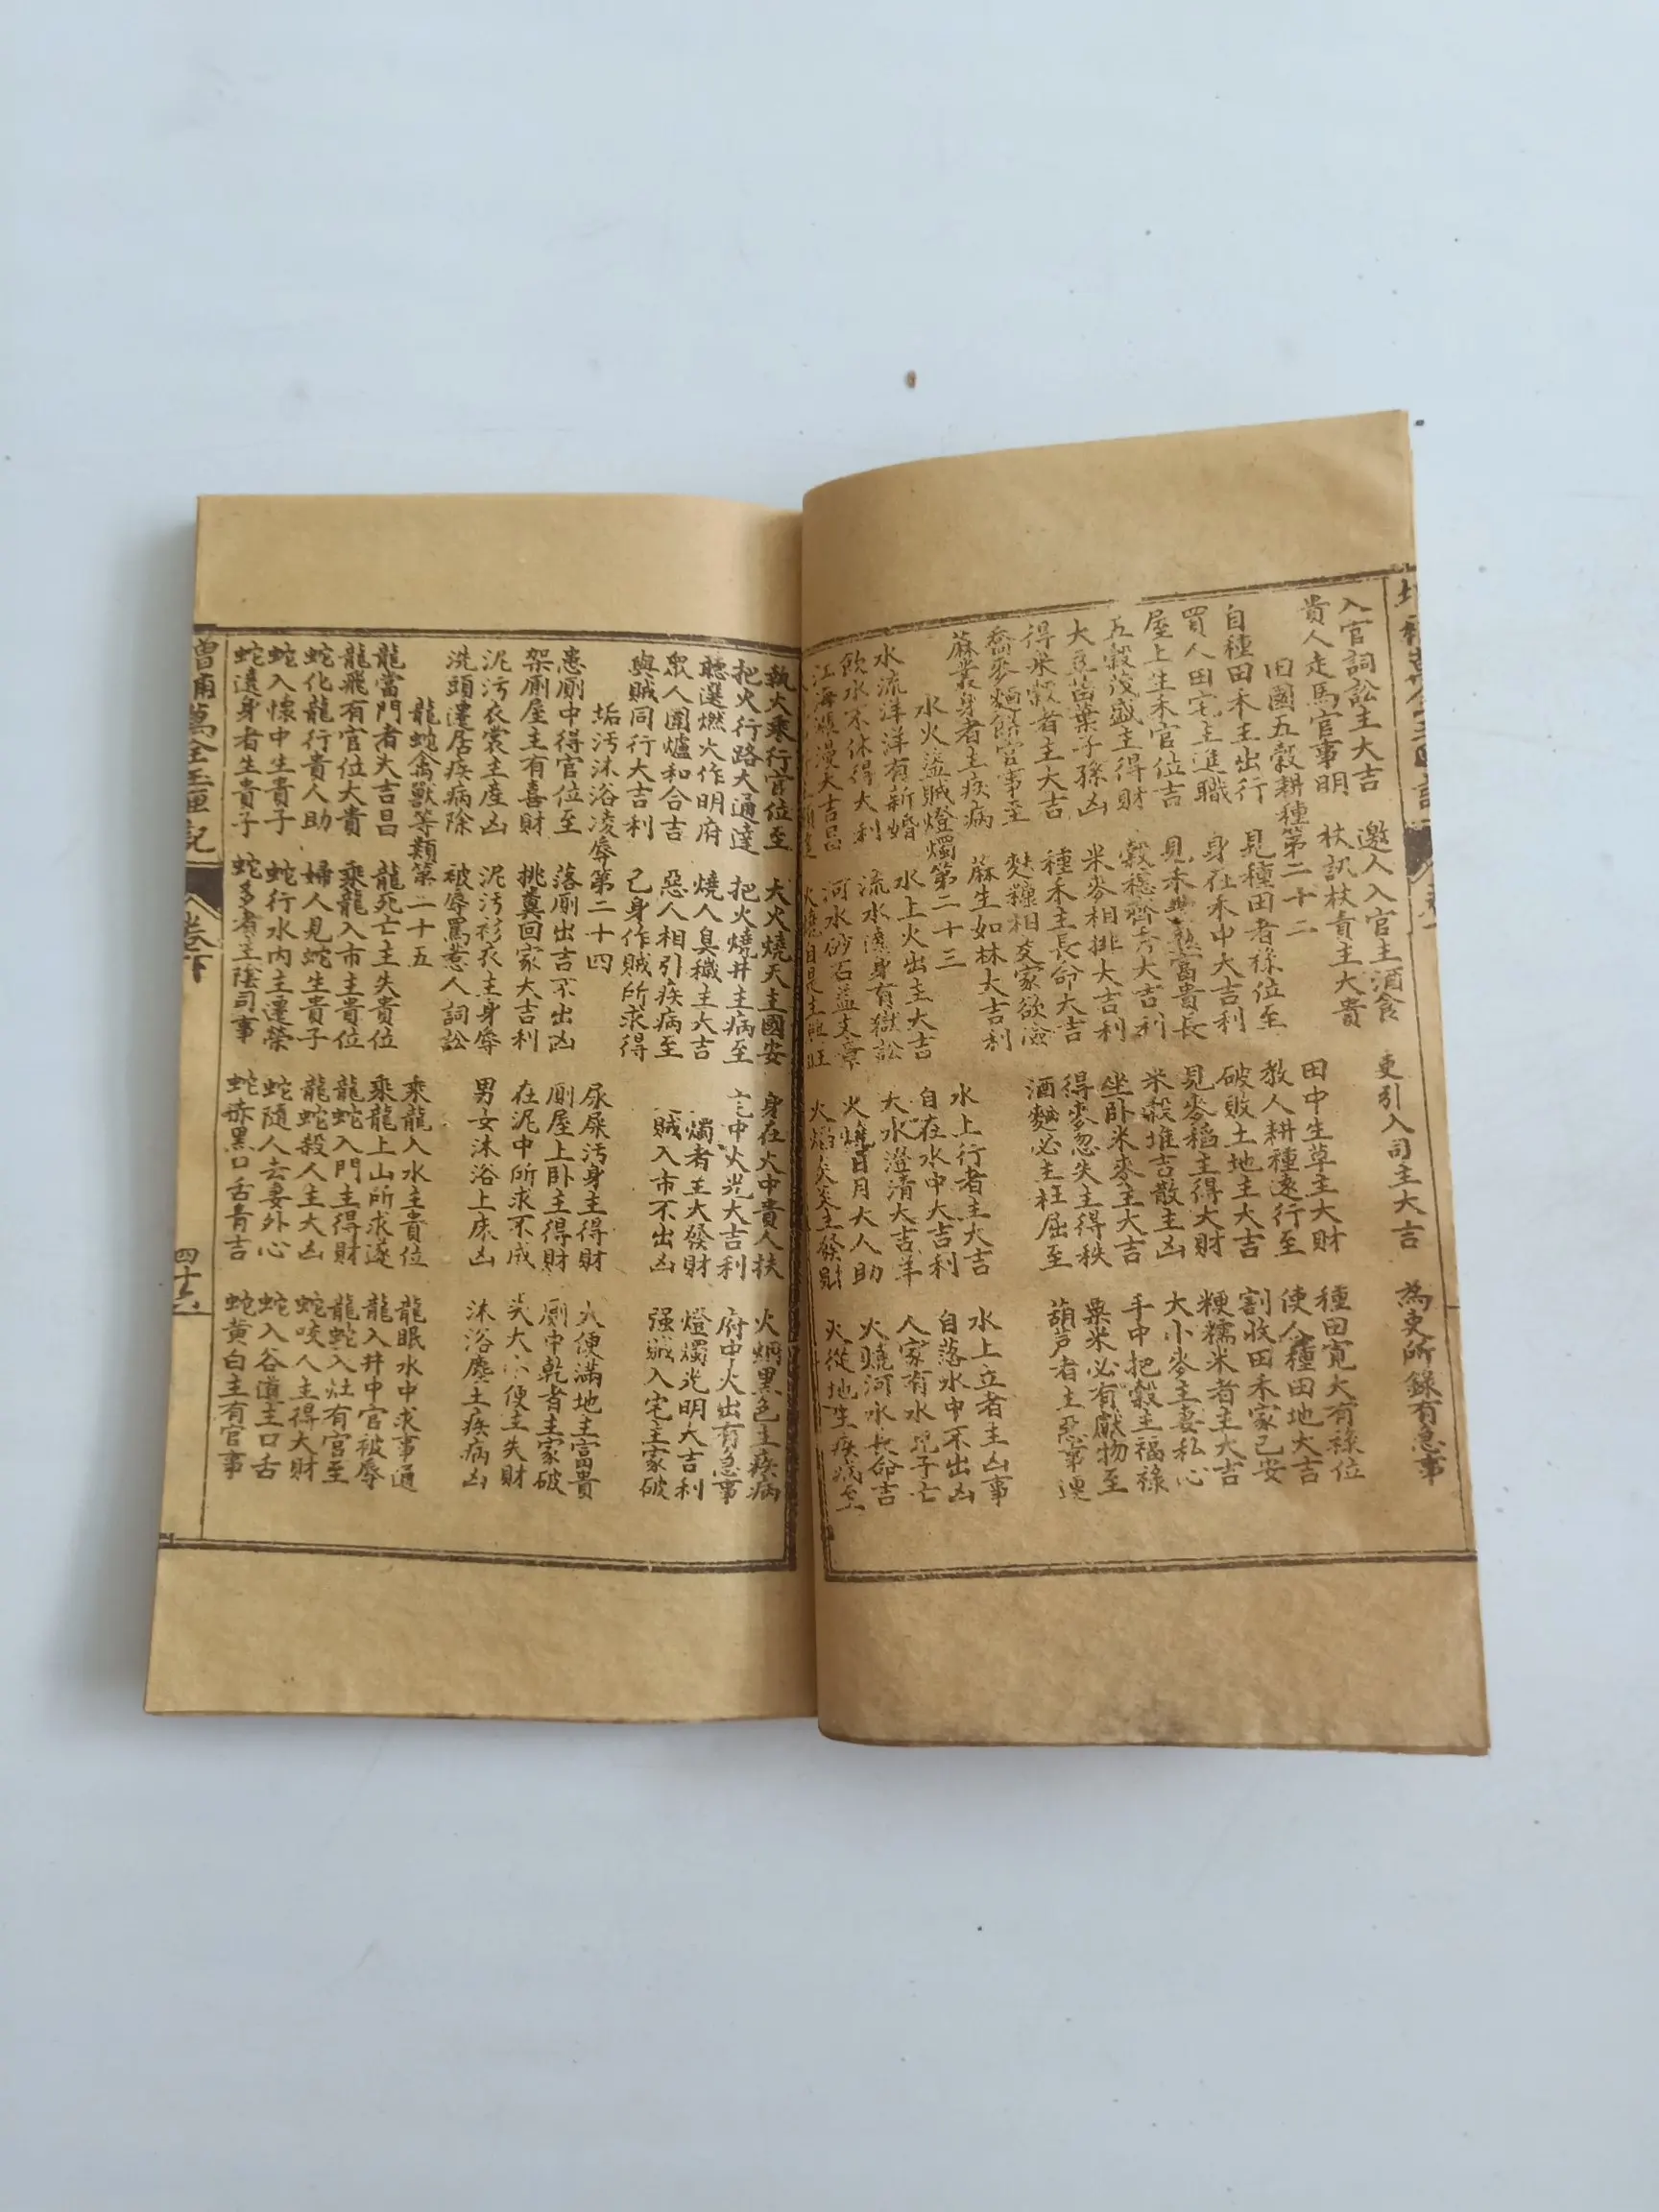 入官詞訟主大吉 邀人入官主酒食 吏引入司主大吉 為吏所錄有急事
貴人走馬官事明 杖訊杖責主大貴
田園五穀耕種第二十二
自種田禾主出行 見種田者祿位至 田中生草主大財 種田寬大有祿位
買人田宅主進職 身在禾中大吉利 教人耕種遠行至 使人種田地大吉
屋上生禾官位吉 見禾熟富貴長 破敗土地主大吉 割收田禾家已安
五穀茂盛主得財 穀穗齊秀大吉利 見麥稻主得大財 粳糯米者主大吉
大豆苗葉子孫凶 米麥相排大吉利 米穀堆吉散主凶 大小麥主妻私心
得米穀者主大吉 種禾主長命大吉 坐卧米麥主大吉 手中把穀主福祿
喬麥麵餅官事至 麩糠相交家欲儉 得麥忽失主得秩 粟米必有獻物至
蔴叢身者主疾病 蔴生如林大吉利 酒麯必主枉屈至 葫芦者主惡事連
水火盜賊燈燭第二十三
水流洋洋有新婚 水上火出主大吉 水上行者主大吉 水上立者主凶事
飲水不休得大利 流水澆身有獄訟 自在水中大吉利 自落水中不出凶
江海漲漫大吉昌 河水砂石益文章 大水澄清大吉羊 人家有水兒子亡
火燒日月大人助 火燒河水長命吉
火燒自屋主興旺 火焰炎炎主發財 火從地生疾病至
執火乘行官位至 大火燒天主國安 身在火中貴人扶 火焵黑色主疾病
把火行路大通達 把火燒井主病至 中火光大吉利 府中火出有急事
聽選燃火作明府 燒人臭穢主大吉 燭者主大發財 燈燭光明大吉利
眾人圍爐和合吉 惡人相引疾病至 賊入市不出凶 强賊入宅主家破
與賊同行大吉利 己身作賊所求得
垢汚沐浴凌辱第二十四
患厠中得官位至 落厠出吉不出凶 尿屎汚身主得財 大便滿地主富貴
架厠屋主有喜財 挑糞回家大吉利 厠屋上卧主得財 厠中乾者主家破
泥汚衣裳主產凶 泥汚衫衣主身辱 在泥中所求不成 失大小便主失財
洗頭遷居疾病除 被辱罵惹人詞訟 男女沐浴上床凶 沐浴塵土疾病凶
龍蛇禽獸等類第二十五
龍當門者大吉昌 龍死亡主失貴位 乘龍入水主貴位 龍眠水中求事通
龍飛有官位大貴 乘龍入市主貴位 乘龍上山所求遂 龍入井中官被辱
蛇化龍行貴人助 婦人見蛇生貴子 龍蛇入門主得財 龍蛇入灶有官至
蛇入懷中生貴子 蛇行水内主遷榮 龍蛇殺人主大凶 蛇咬人主得大財
蛇遶身者生貴子 蛇多者主陰司事 蛇隨人去妻外心 蛇入谷道主口舌
蛇赤黑口舌青吉 蛇黄白主有官事
增補萬全玉匣記 卷下 四十六